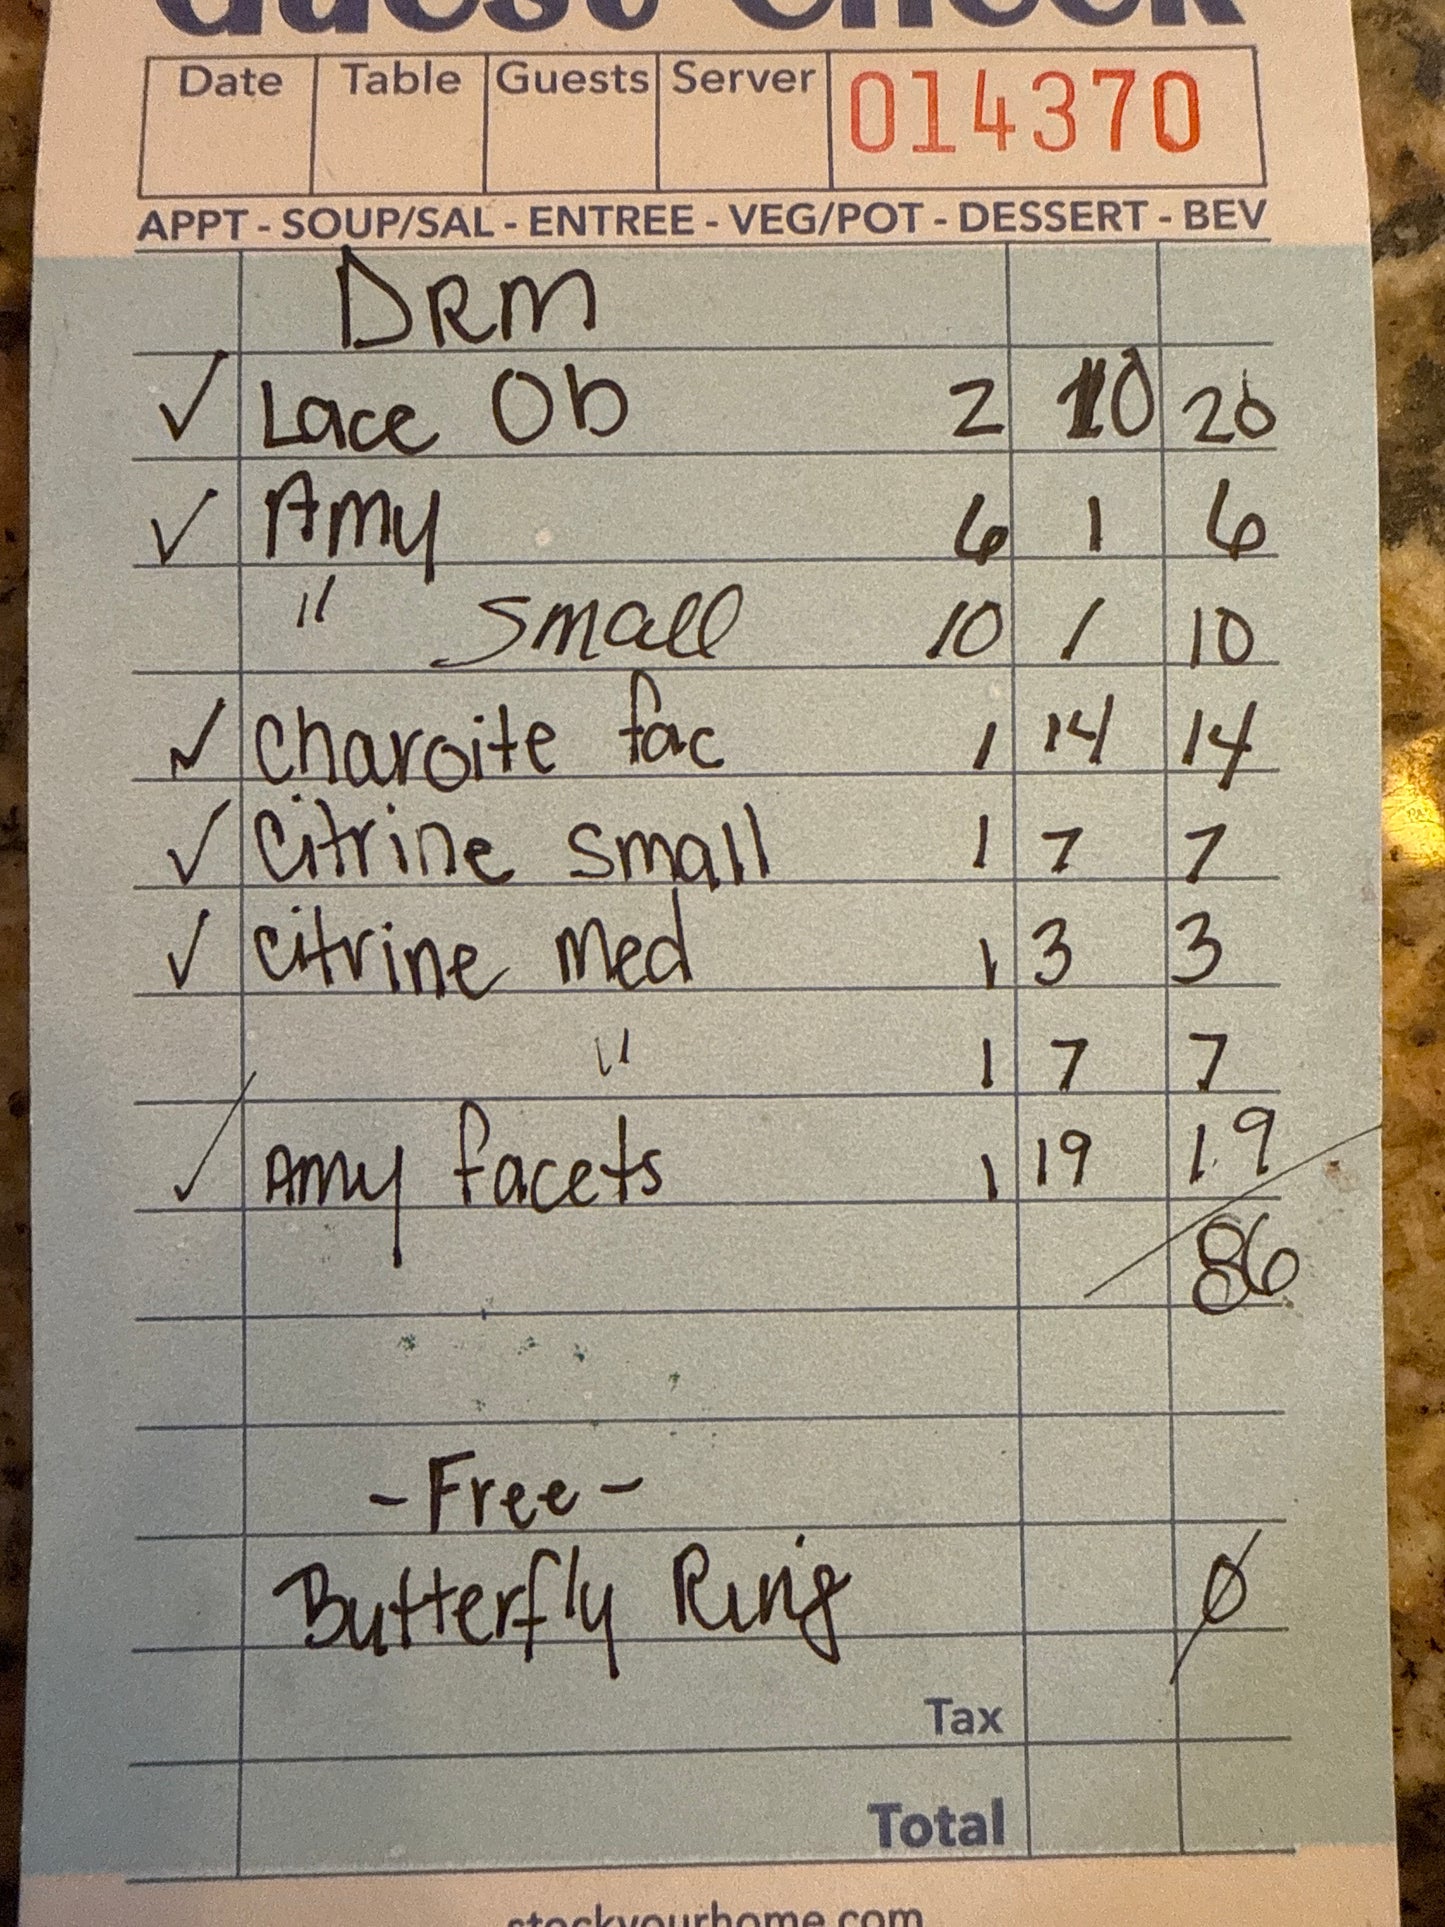 Guest Check
Date Table Guests Server 014370
APPT - SOUP/SAL - ENTREE - VEG/POT - DESSERT - BEV
DRM
✓ Lace Ob 2 10 20
✓ Amy 6 1 6
" small 10 1 10
✓ Charoite fac 1 14 14
✓ Citrine small 1 7 7
✓ Citrine Med 1 3 3
" 1 7 7
✓ Amy facets 1 19 19
86
- Free -
Butterfly Ring 0
Tax
Total
stockyourhome.com